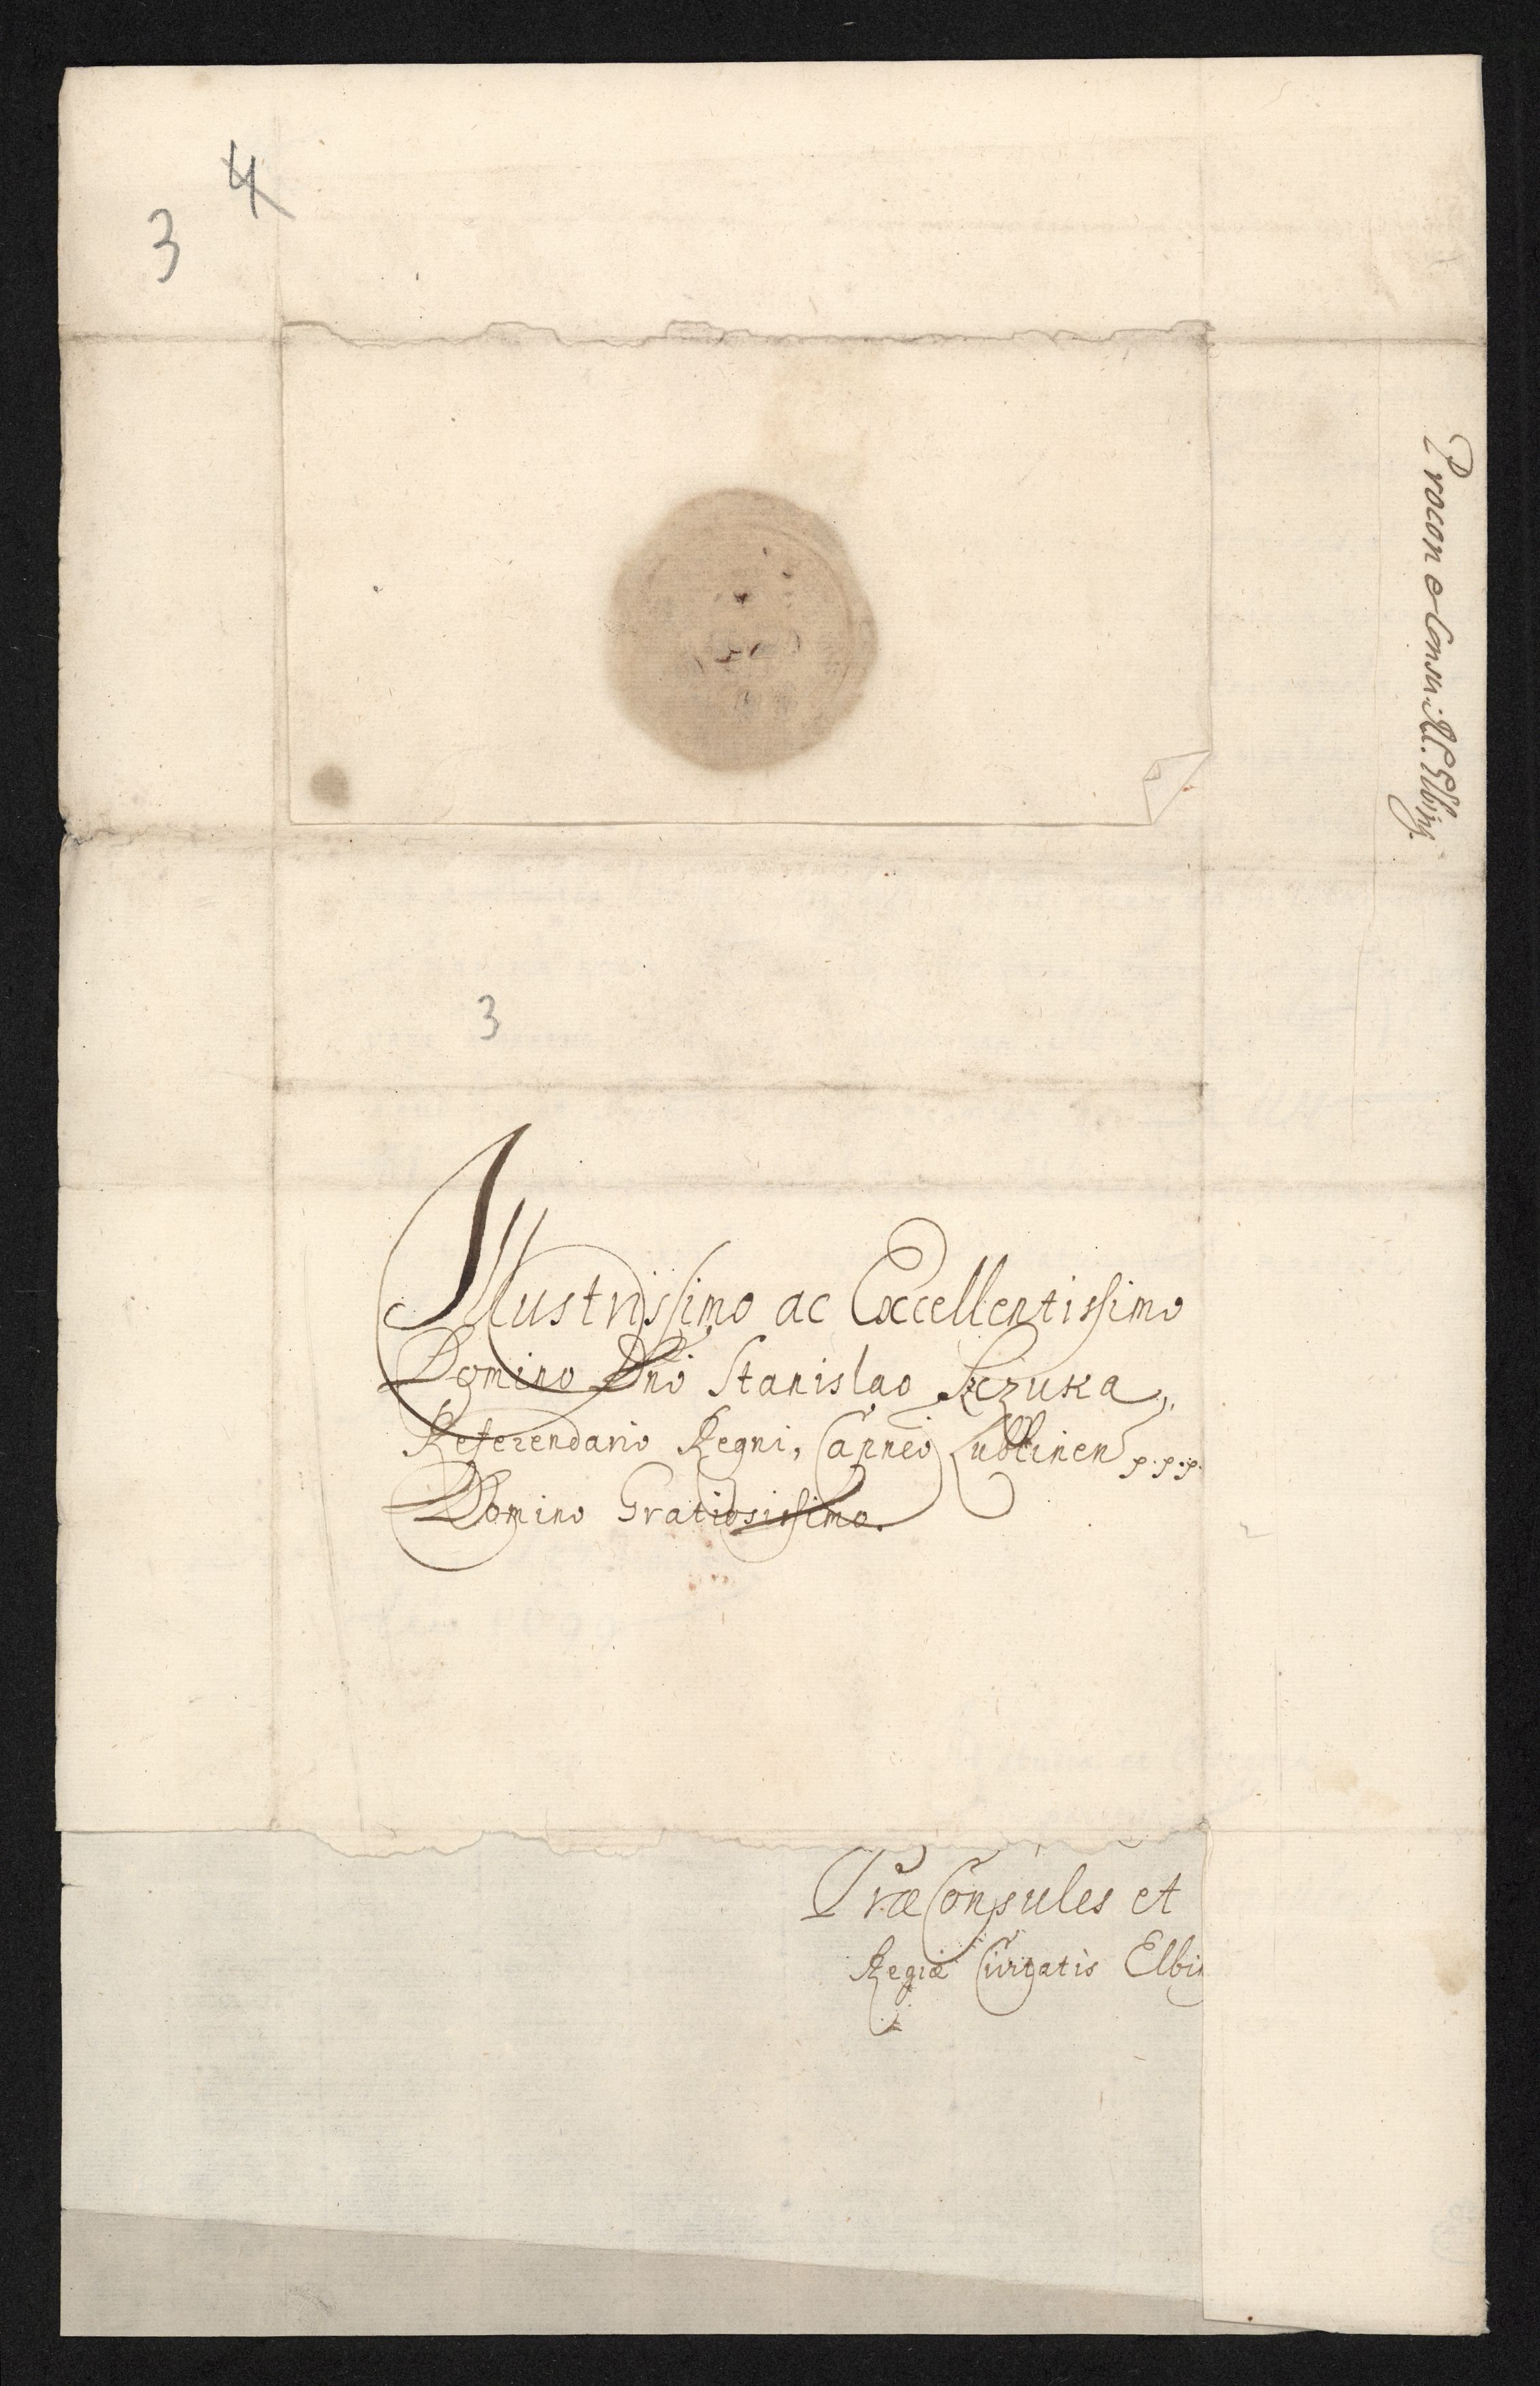 4
3
Procon et Consu. Rl. Elbing.
3
Illustrissimo ac Excellentissimo
Domino Dnō Stanislao Szczuka,
Referendario Regni, Capneō Lublinen p.p.p.
Domino Gratiosissimo.
PræConsules et
Regiæ Civitatis Elbin